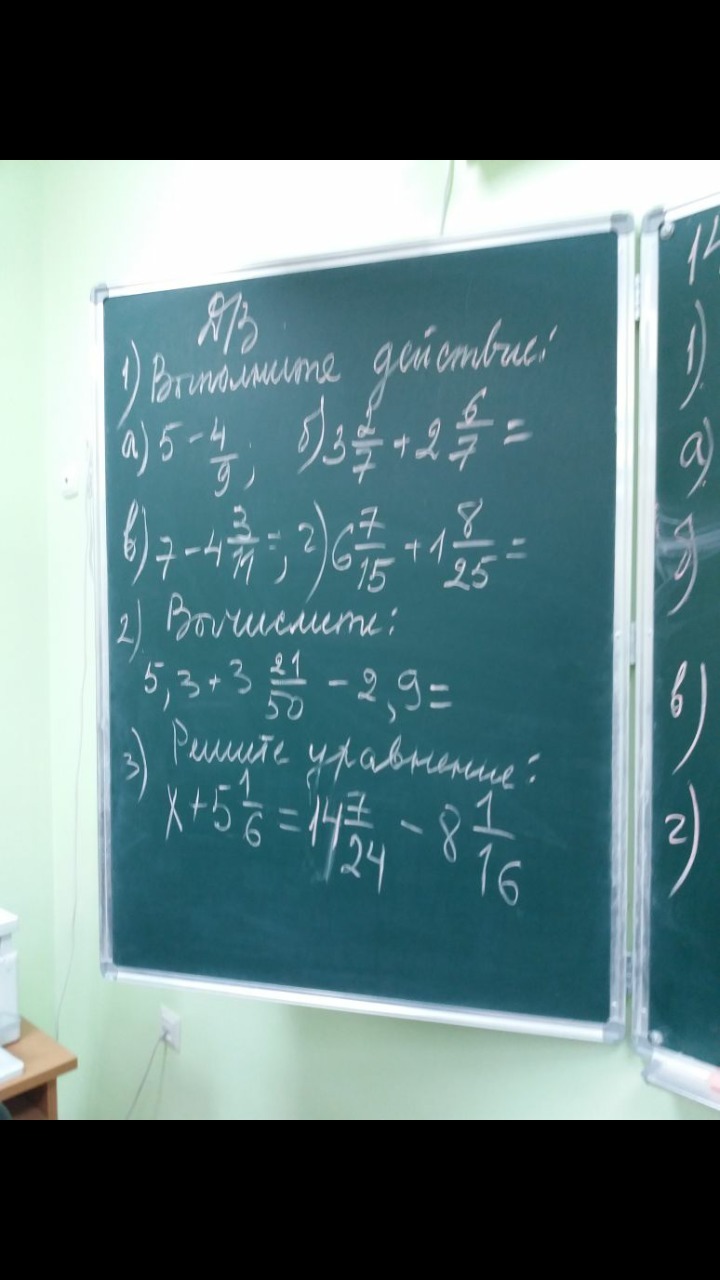 Д/З
1) Выполните действие:
а) 5 - 4/9; б) 3 2/7 + 2 6/7 =
в) 7 - 4 3/11 =; г) 6 7/15 + 1 8/25 =
2) Вычислите:
5,3 + 3 21/50 - 2,9 =
3) Решите уравнение:
x + 5 1/6 = 14 7/24 - 8 1/16
14
1)
а)
в)
г)